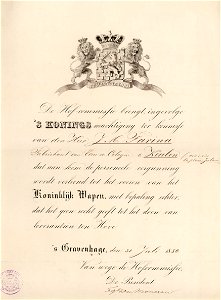 De Hofcommissie brengt ingevolge
'S KONINGS machtiging ter kennisse
van den Heer J. A.
Fabrikant van Eau de Cologne, te Keulen
dat aan hem de persoonlijke vergunning
wordt verleend tot het voeren van het
Koninklijk Wapen, met bepaling echter,
dat het geen recht geeft tot het doen van
leverantien ten Hove
's Gravenhage, den 30 Juli 18
Van wege de Hofcommissie,
De President